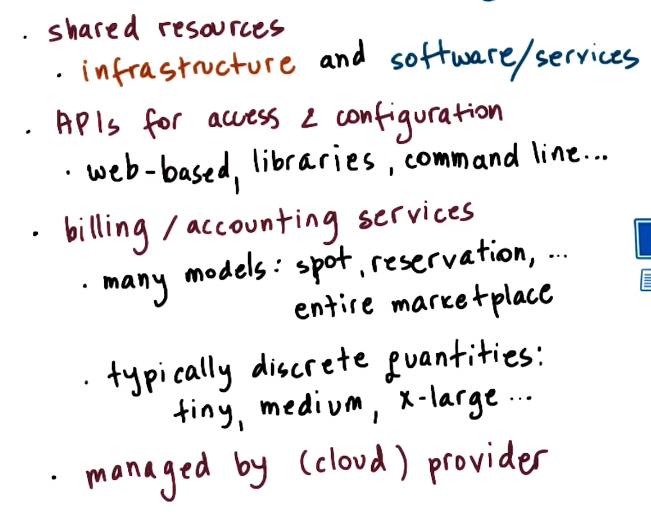 · shared resources
· infrastructure and software/services
· APIs for access & configuration
· web-based, libraries, command line...
· billing / accounting services
· many models: spot, reservation, ...
entire marketplace
· typically discrete quantities:
tiny, medium, x-large ...
· managed by (cloud) provider